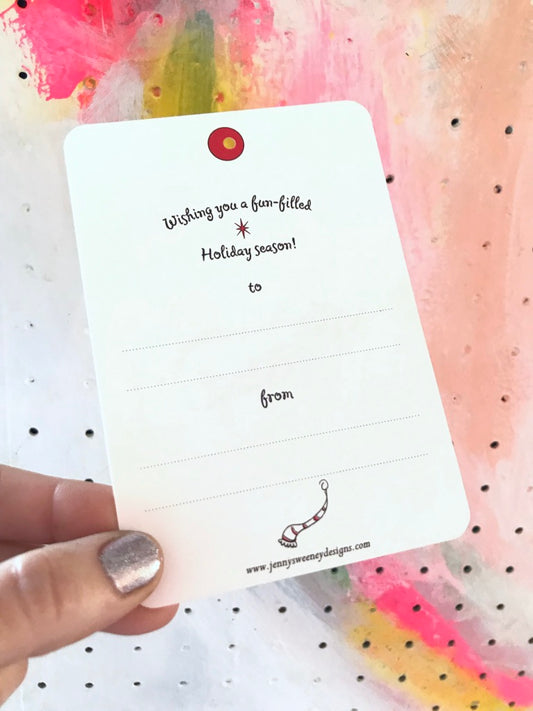 Wishing you a fun-filled
Holiday season!
to
from
www.jennysweeneydesigns.com